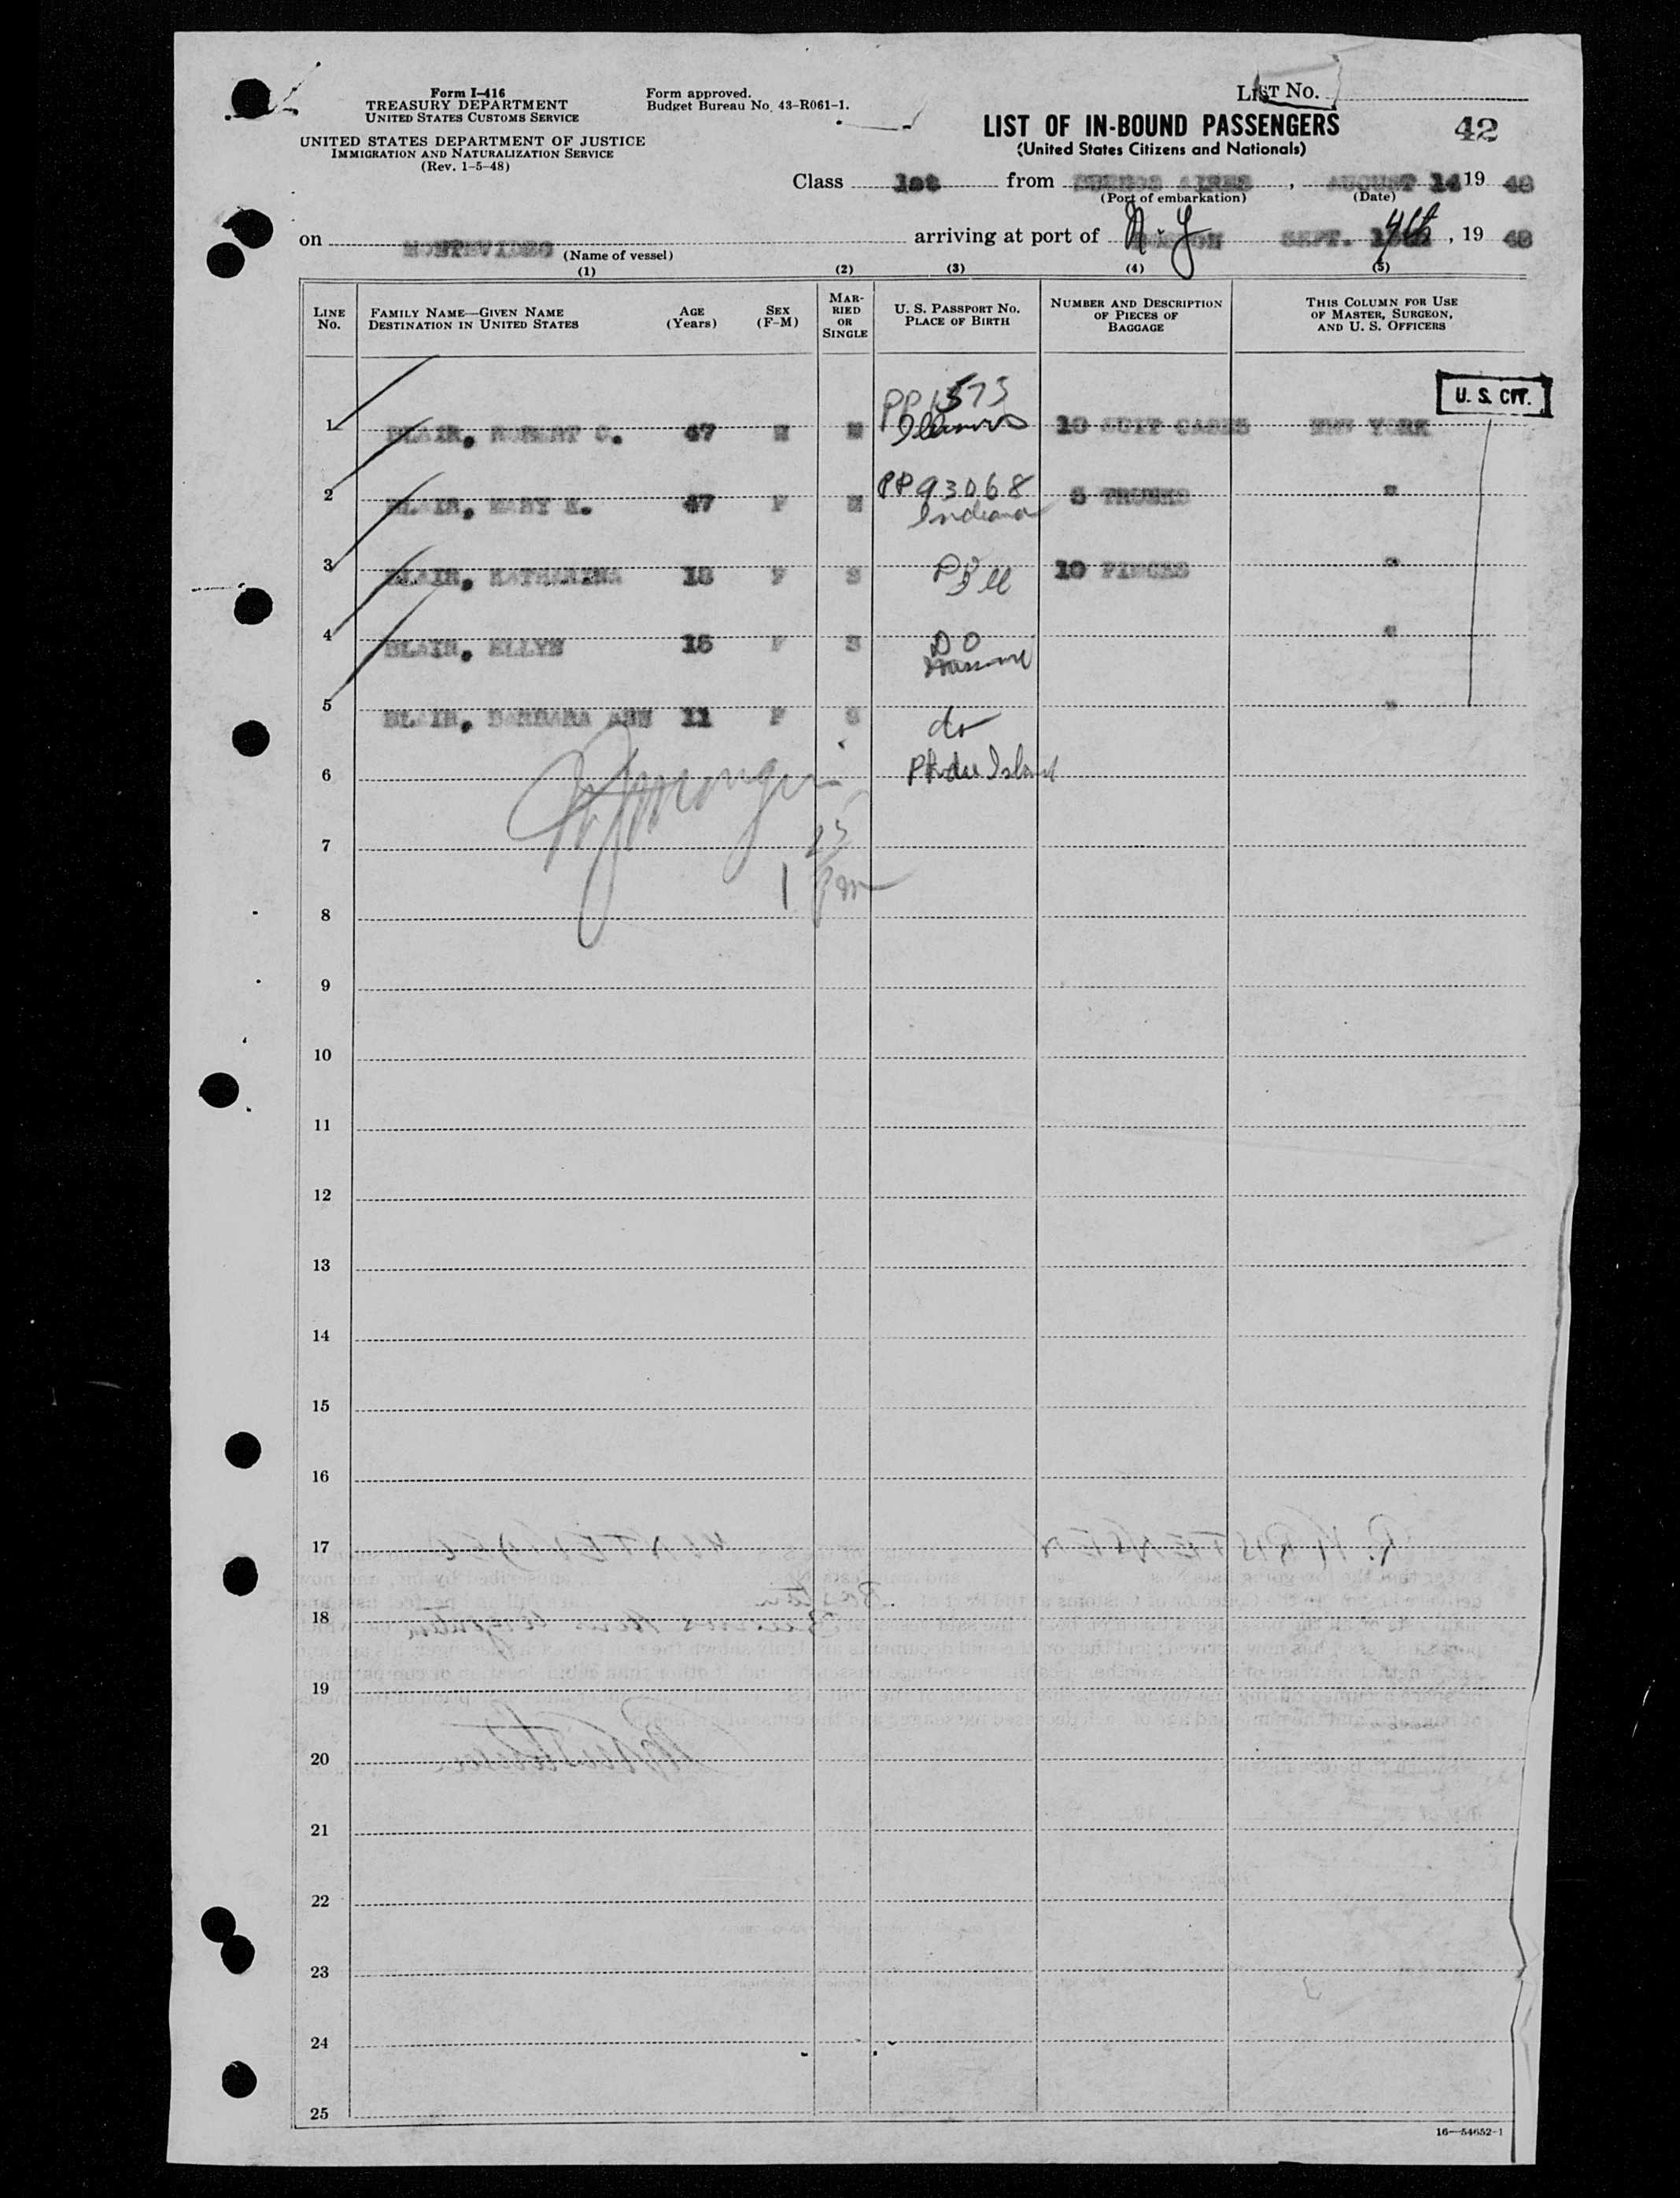 Form I-416
TREASURY DEPARTMENT
UNITED STATES CUSTOMS SERVICE
UNITED STATES DEPARTMENT OF JUSTICE
IMMIGRATION AND NATURALIZATION SERVICE
(Rev. 1-5-48)
Form approved.
Budget Bureau No. 43-R061-1.
LIST No.
LIST OF IN-BOUND PASSENGERS
(United States Citizens and Nationals)
42
Class 1st from BUENOS AIRES, AUGUST 14 19 48
(Port of embarkation) (Date)
on MONTEVIDEO arriving at port of N.Y SEPT. 4th, 19 48
(Name of vessel)
(1) (2) (3) (4) (5)
LINE No.
FAMILY NAME—GIVEN NAME
DESTINATION IN UNITED STATES
AGE
(Years)
SEX
(F-M)
MAR-
RIED
OR
SINGLE
U. S. PASSPORT No.
PLACE OF BIRTH
NUMBER AND DESCRIPTION
OF PIECES OF
BAGGAGE
THIS COLUMN FOR USE
OF MASTER, SURGEON,
AND U. S. OFFICERS
U. S. CIT.
PP 1573
1 BLAIR, ROBERT C. 47 M M Illinois 10 SUIT CASES NEW YORK
2 BLAIR, MARY K. 47 F M PP 93068 5 TRUNKS "
Indiana
3 BLAIR, KATHARINE 18 F S PP 10 PIECES "
Ill
4 BLAIR, ELLYN 15 F S DO "
5 BLAIR, BARBARA ANN 11 F S do "
6 Rhode Island
7
23
1 pm
8
9
10
11
12
13
14
15
16
17
18
19
20
21
22
23
24
25
16—54652-1